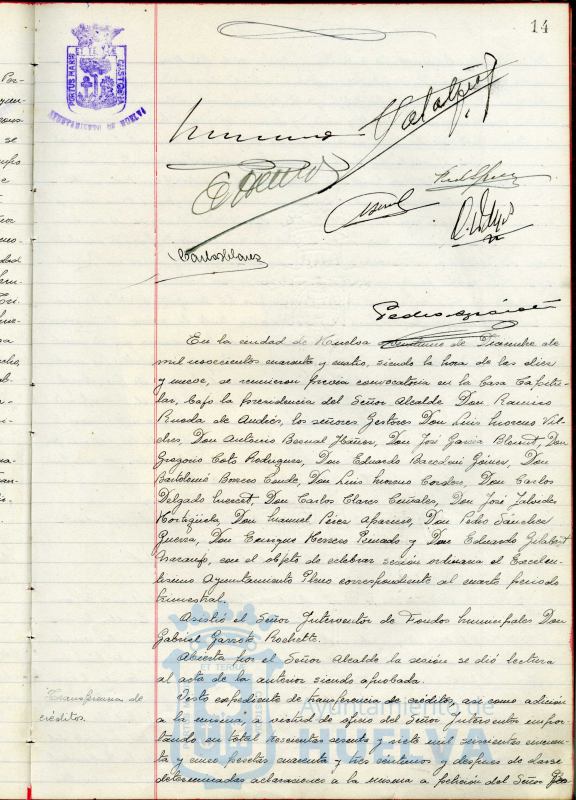 14
PORTUS MARIS ET TERRE CUSTODIA
AYUNTAMIENTO DE HUELVA
Carlos Clares
En la ciudad de Huelva de Diciembre de
mil novecientos cuarenta y cuatro, siendo la hora de las diez
y nueve, se reunieron previa convocatoria en la Casa Capitu-
lar, bajo la Presidencia del Señor Alcalde Don Ramiro
Rueda de Andrés, los señores Gestores Don Luis Moreno Vil-
ches, Don Antonio Bernal Don José García Don
Gregorio Coto Rodríguez, Don Eduardo Gómez, Don
Bartolomé Borrero Conde, Don Luis Moreno Cordero, Don Carlos
Delgado Don Carlos Clares Don José
Don Manuel Pérez Aparicio, Don Pedro Sánchez
Guerra, Don Enrique Herrero y Don Eduardo Gilabert
Naranjo, con el objeto de celebrar sesión ordinaria el Excelen-
tísimo Ayuntamiento Pleno correspondiente al cuarto periodo
trimestral.
Asistió el Señor Interventor de Fondos Municipales Don
Gabriel Garrote Rochette.
Abierta por el Señor Alcalde la sesión se dió lectura
al acta de la anterior siendo aprobada.
Transferencia de
créditos.
Visto expediente de transferencia de créditos, así como adición
a la misma, a virtud de oficio del Señor Interventor impor-
tando un total trescientas sesenta y siete mil
ta y cinco pesetas cuarenta y tres centimos y despues de darse
determinadas aclaraciones a la misma a petición del Señor
Ayuntamiento de
HUELVA